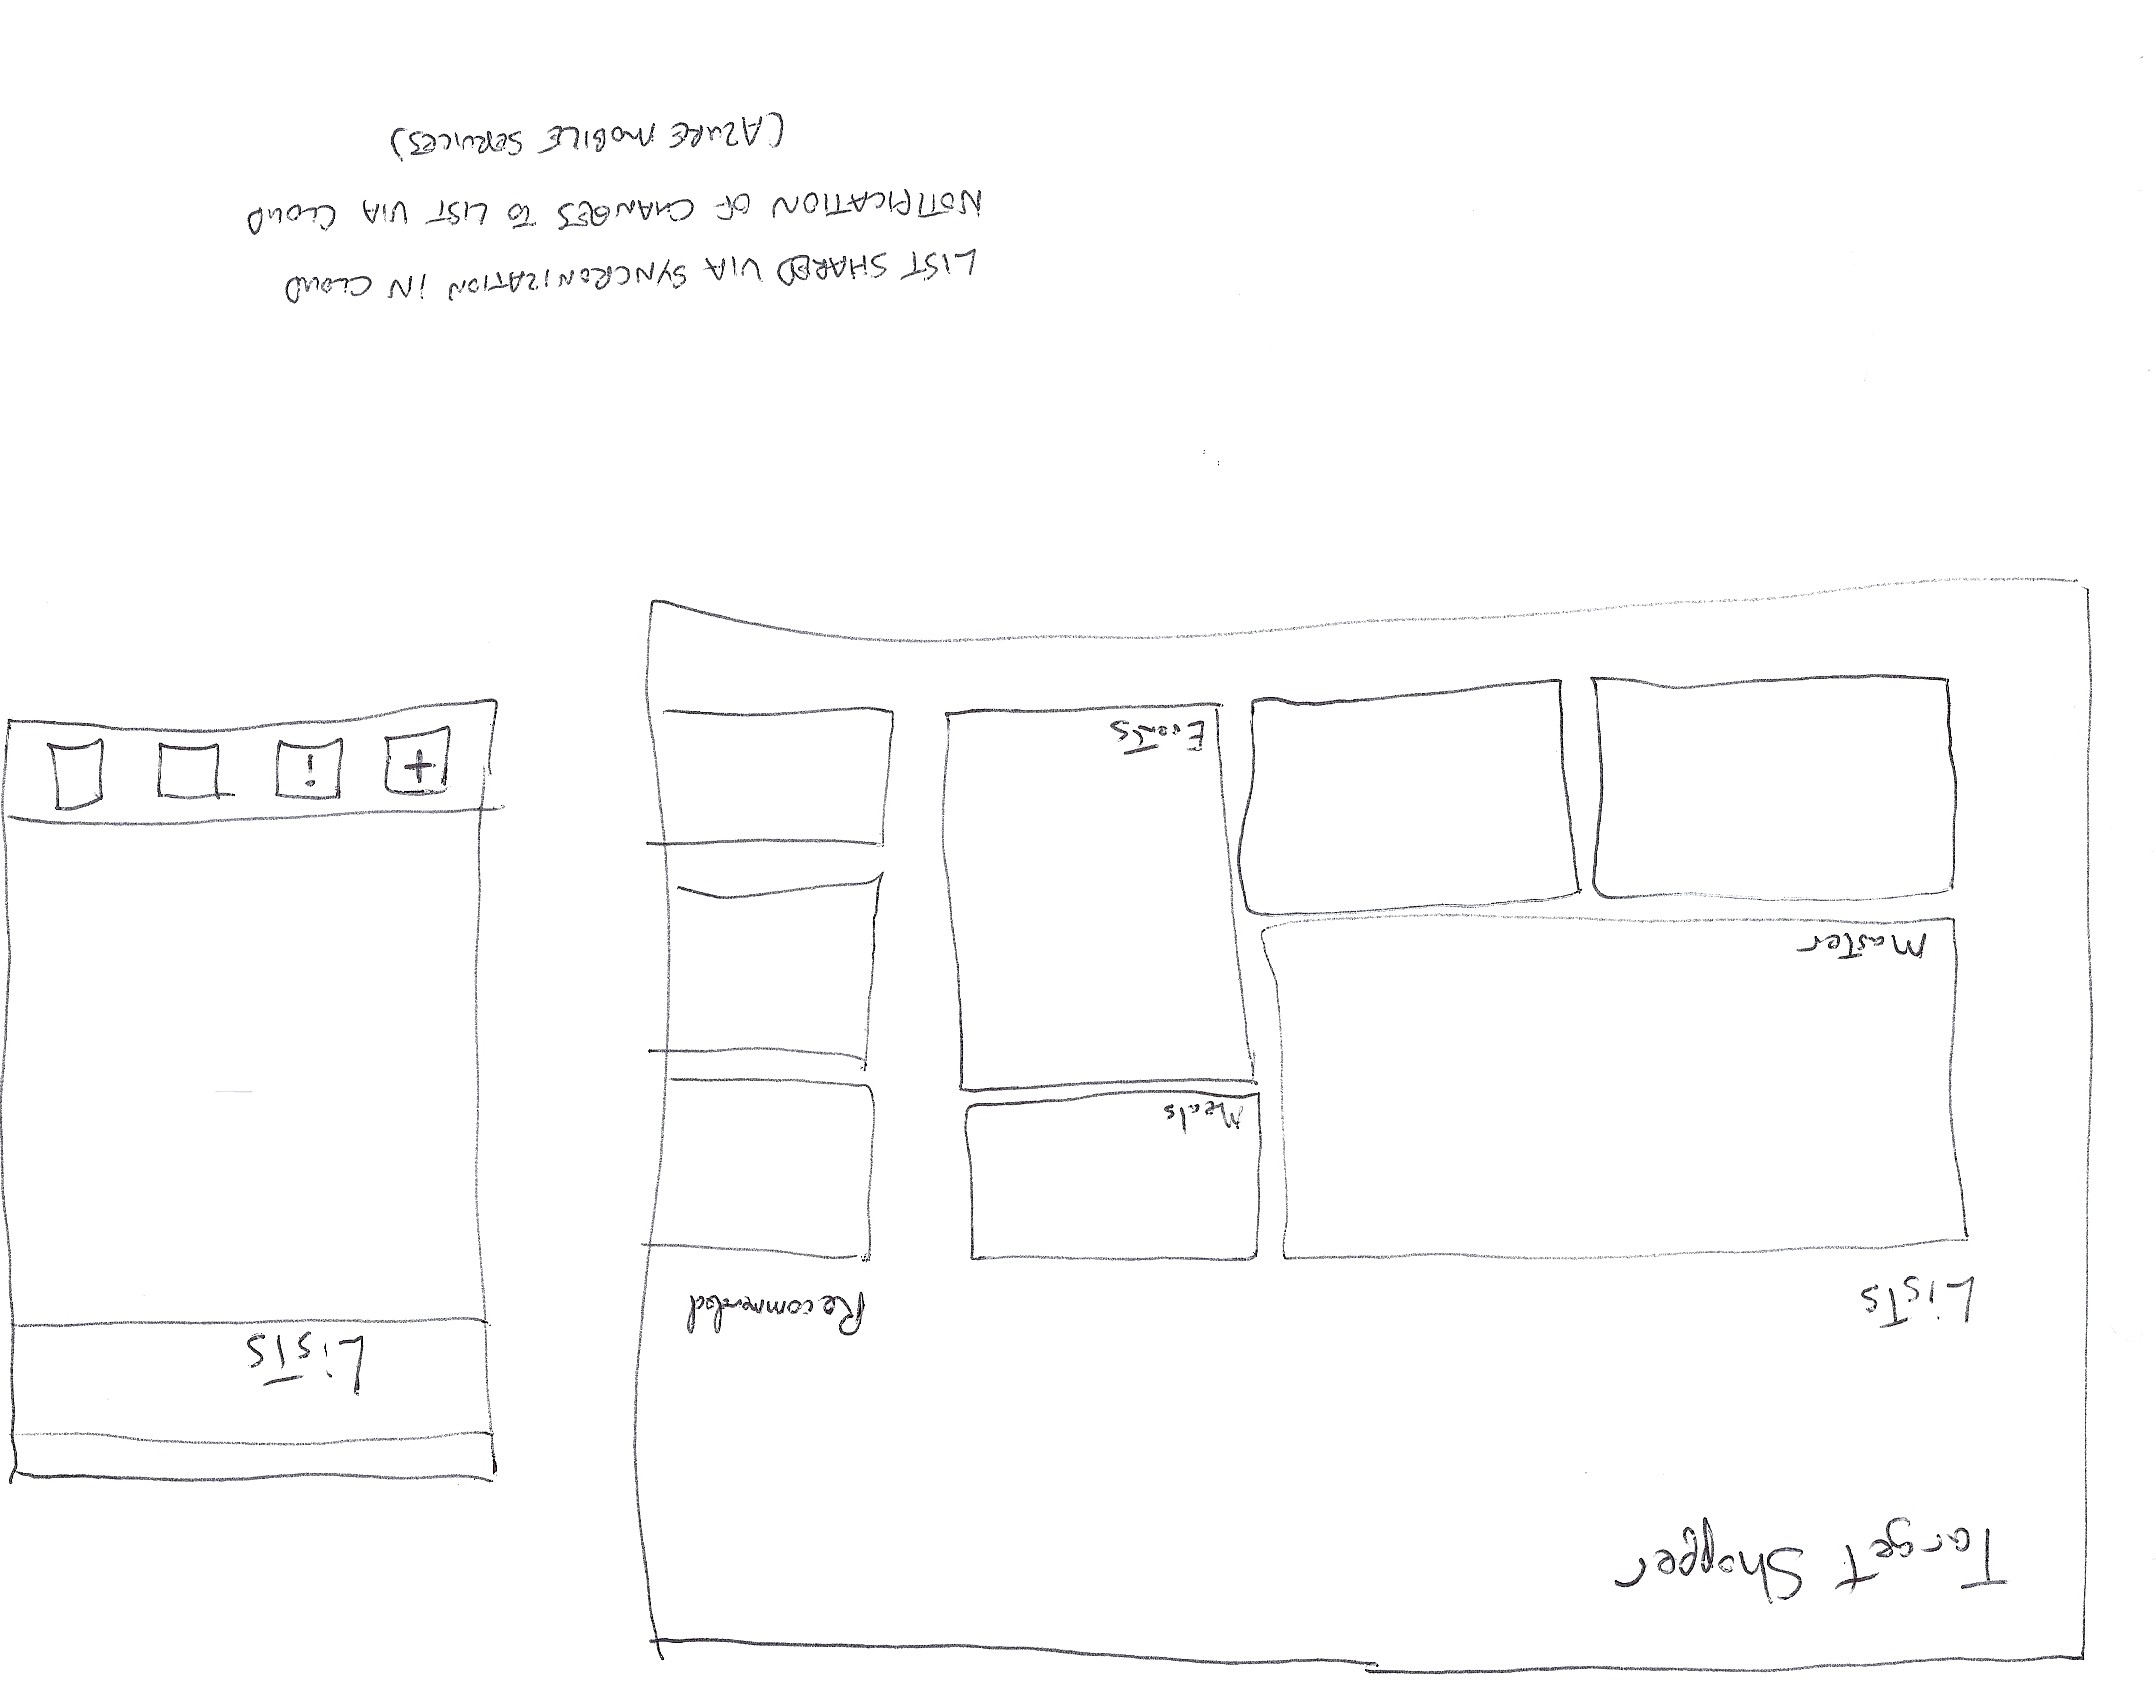 Target Shopper
Lists
Recommended
Master
Meals
Events
Lists
+
!
LIST SHARED VIA SYNCRONIZATION IN CLOUD
NOTIFICATION OF CHANGES TO LIST VIA CLOUD
(AZURE MOBILE SERVICES)